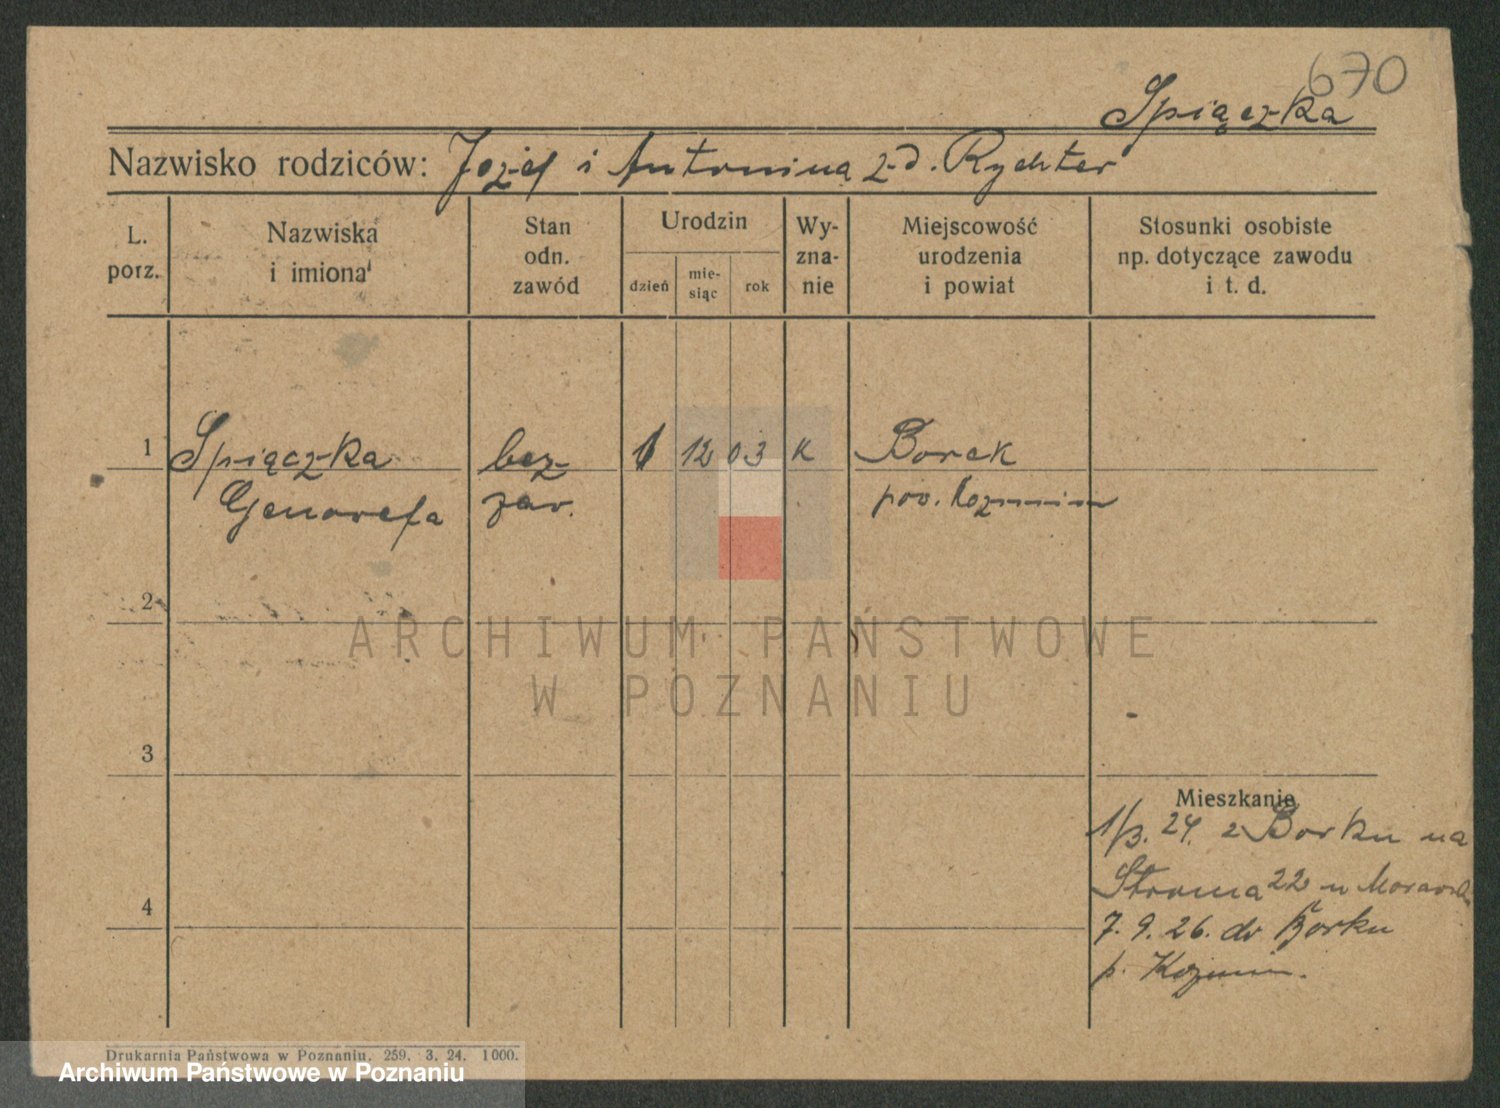 670
Spiączka
Nazwisko rodziców: Józef i Antonina z d. Rychter
L. porz.
Nazwiska i imiona
Stan odn. zawód
Urodzin
dzień
mie-siąc
rok
Wy-zna-nie
Miejscowość urodzenia i powiat
Stosunki osobiste np. dotyczące zawodu i t. d.
1 Spiączka bez 1 12 03 K Borek
Genowefa zaw. pow. Kozmin
2
ARCHIWUM PAŃSTWOWE
W POZNANIU
3
Mieszkanie
1/3. 24. z Borku na
4
Stroma 22 u
7. 9. 26. do Borku
p. Kozmin.
Drukarnia Państwowa w Poznaniu. 259. 3. 24. 1000.
Archiwum Państwowe w Poznaniu